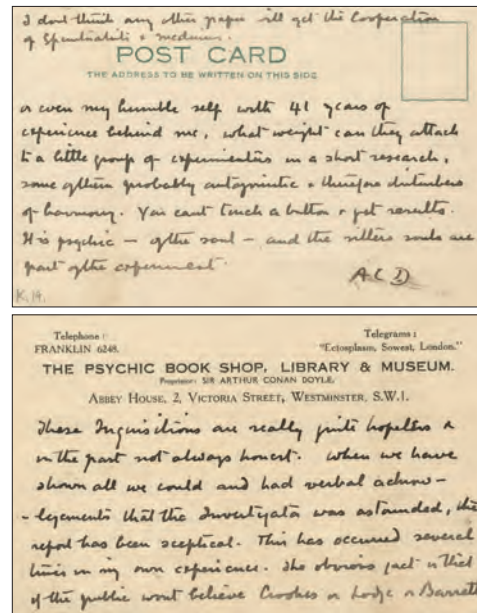 I dont think any other paper will get the Cooperation
of Spiritualists & mediums.
POST CARD
THE ADDRESS TO BE WRITTEN ON THIS SIDE
or even my humble self with 41 years of
experience behind me, what weight can they attach
to a little group of experimenters in a short research,
some of them probably antagonistic & therefore disturbers
of harmony. You cant touch a button & get results.
It is psychic — of the soul — and the sitters souls are
part of the experiment.
A C D
K.14.
Telephone: Telegrams:
FRANKLIN 6248. "Ectoplasm, Sowest, London."
THE PSYCHIC BOOK SHOP, LIBRARY & MUSEUM.
Proprietor: SIR ARTHUR CONAN DOYLE.
ABBEY HOUSE, 2, VICTORIA STREET, WESTMINSTER, S.W.1.
These Inquisitions are really quite hopeless &
in the past not always honest. When we have
shown all we could and had verbal acknow-
-legements that the Investigator was astounded, the
report has been sceptical. This has occurred several
times in my own experience. The obvious fact is that
if the public wont believe Crookes or Lodge or Barrett